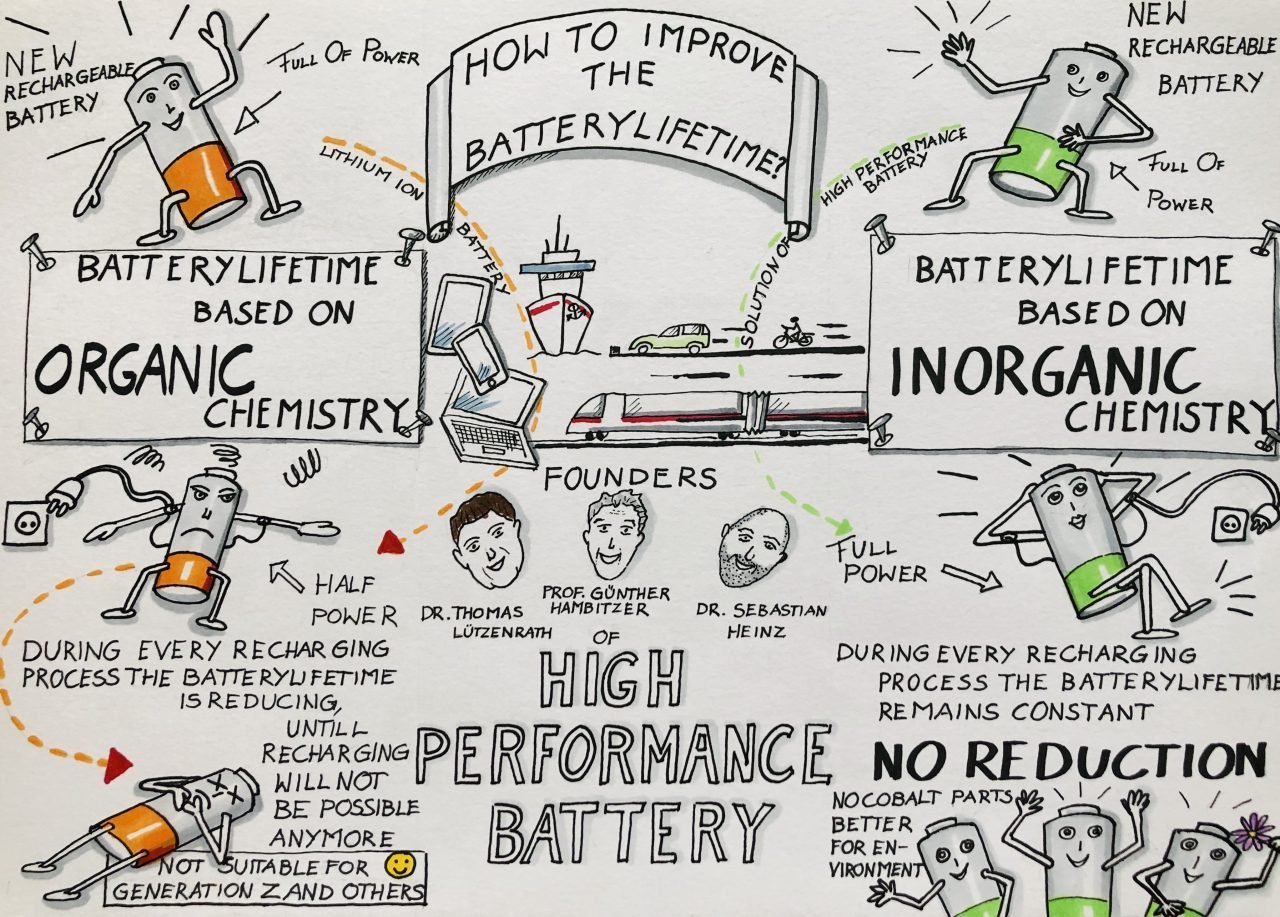 NEW
RECHARGEABLE
BATTERY
FULL OF POWER
LITHIUM ION
BATTERY
HOW TO IMPROVE
THE
BATTERYLIFETIME?
HIGH PERFORMANCE
BATTERY
SOLUTION OF
NEW
RECHARGEABLE
BATTERY
FULL OF
POWER
BATTERYLIFETIME
BASED ON
ORGANIC
CHEMISTRY
BATTERYLIFETIME
BASED ON
INORGANIC
CHEMISTRY
HALF
POWER
DURING EVERY RECHARGING
PROCESS THE BATTERYLIFETIME
IS REDUCING,
UNTILL
RECHARGING
WILL NOT
BE POSSIBLE
ANYMORE
NOT SUITABLE FOR
GENERATION Z AND OTHERS
FOUNDERS
DR. THOMAS
LÜTZENRATH
PROF. GÜNTHER
HAMBITZER
DR. SEBASTIAN
HEINZ
OF
HIGH
PERFORMANCE
BATTERY
FULL
POWER
DURING EVERY RECHARGING
PROCESS THE BATTERYLIFETIME
REMAINS CONSTANT
NO REDUCTION
NO COBALT PARTS
BETTER
FOR EN-
VIRONMENT